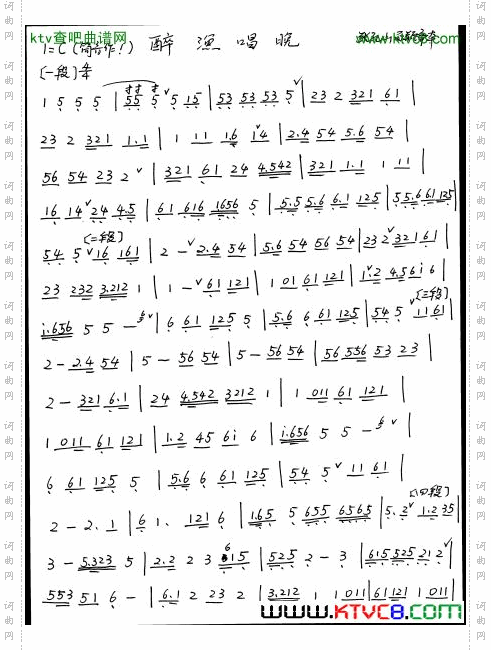 ktv查吧曲谱网
醉渔唱晚
1=C
[一段]
1 5 5 5 | 55 5 5 15 | 53 53 53 5 | 23 2 321 61 |
23 2 321 1.1 | 1 11 1.6 14 | 2.4 54 5.6 54 |
56 54 23 2 | 321 61 24 4.542 | 321 1.1 1 11 |
16 14 24 4.5 | 61 616 1656 5 | 5.5 5.6 6.1 125 | 5 5.6 61 125 |
[二段]
54 5 16 161 | 2 - 2.4 54 | 5.6 54 56 54 | 23 2 321 61 |
23 232 3.212 1 | 1 - 61 121 | 1 01 61 121 | 1 2 4.56i 6 |
[三段]
i.656 5 5 - | 6 61 125 5 | 5.6 6 61 125 | 54 5 11 61 |
2 - 2.4 54 | 5 - 56 54 | 5 - 56 54 | 56 556 53 23 |
2 - 321 6.1 | 24 4.542 3212 1 | 1 011 61 121 |
1 011 61 121 | 1.2 45 6i 6 | i.656 5 5 -
6 61 125 5 | 5.6 6 61 125 | 54 5 11 61 |
[四段]
2 - 2. 1 | 6 1. 121 6 | 1.65 5 655 6565 | 5. 2 1.235 |
3 - 5.323 5 | 2.2 2 3 615 | 525 2 - 3 | 615 525 21 2 |
553 51 6 - | 6.1 2 23 2 | 3.212 1 1 011 | 61 121 1 011 |
www.KTVC8.com
词曲网